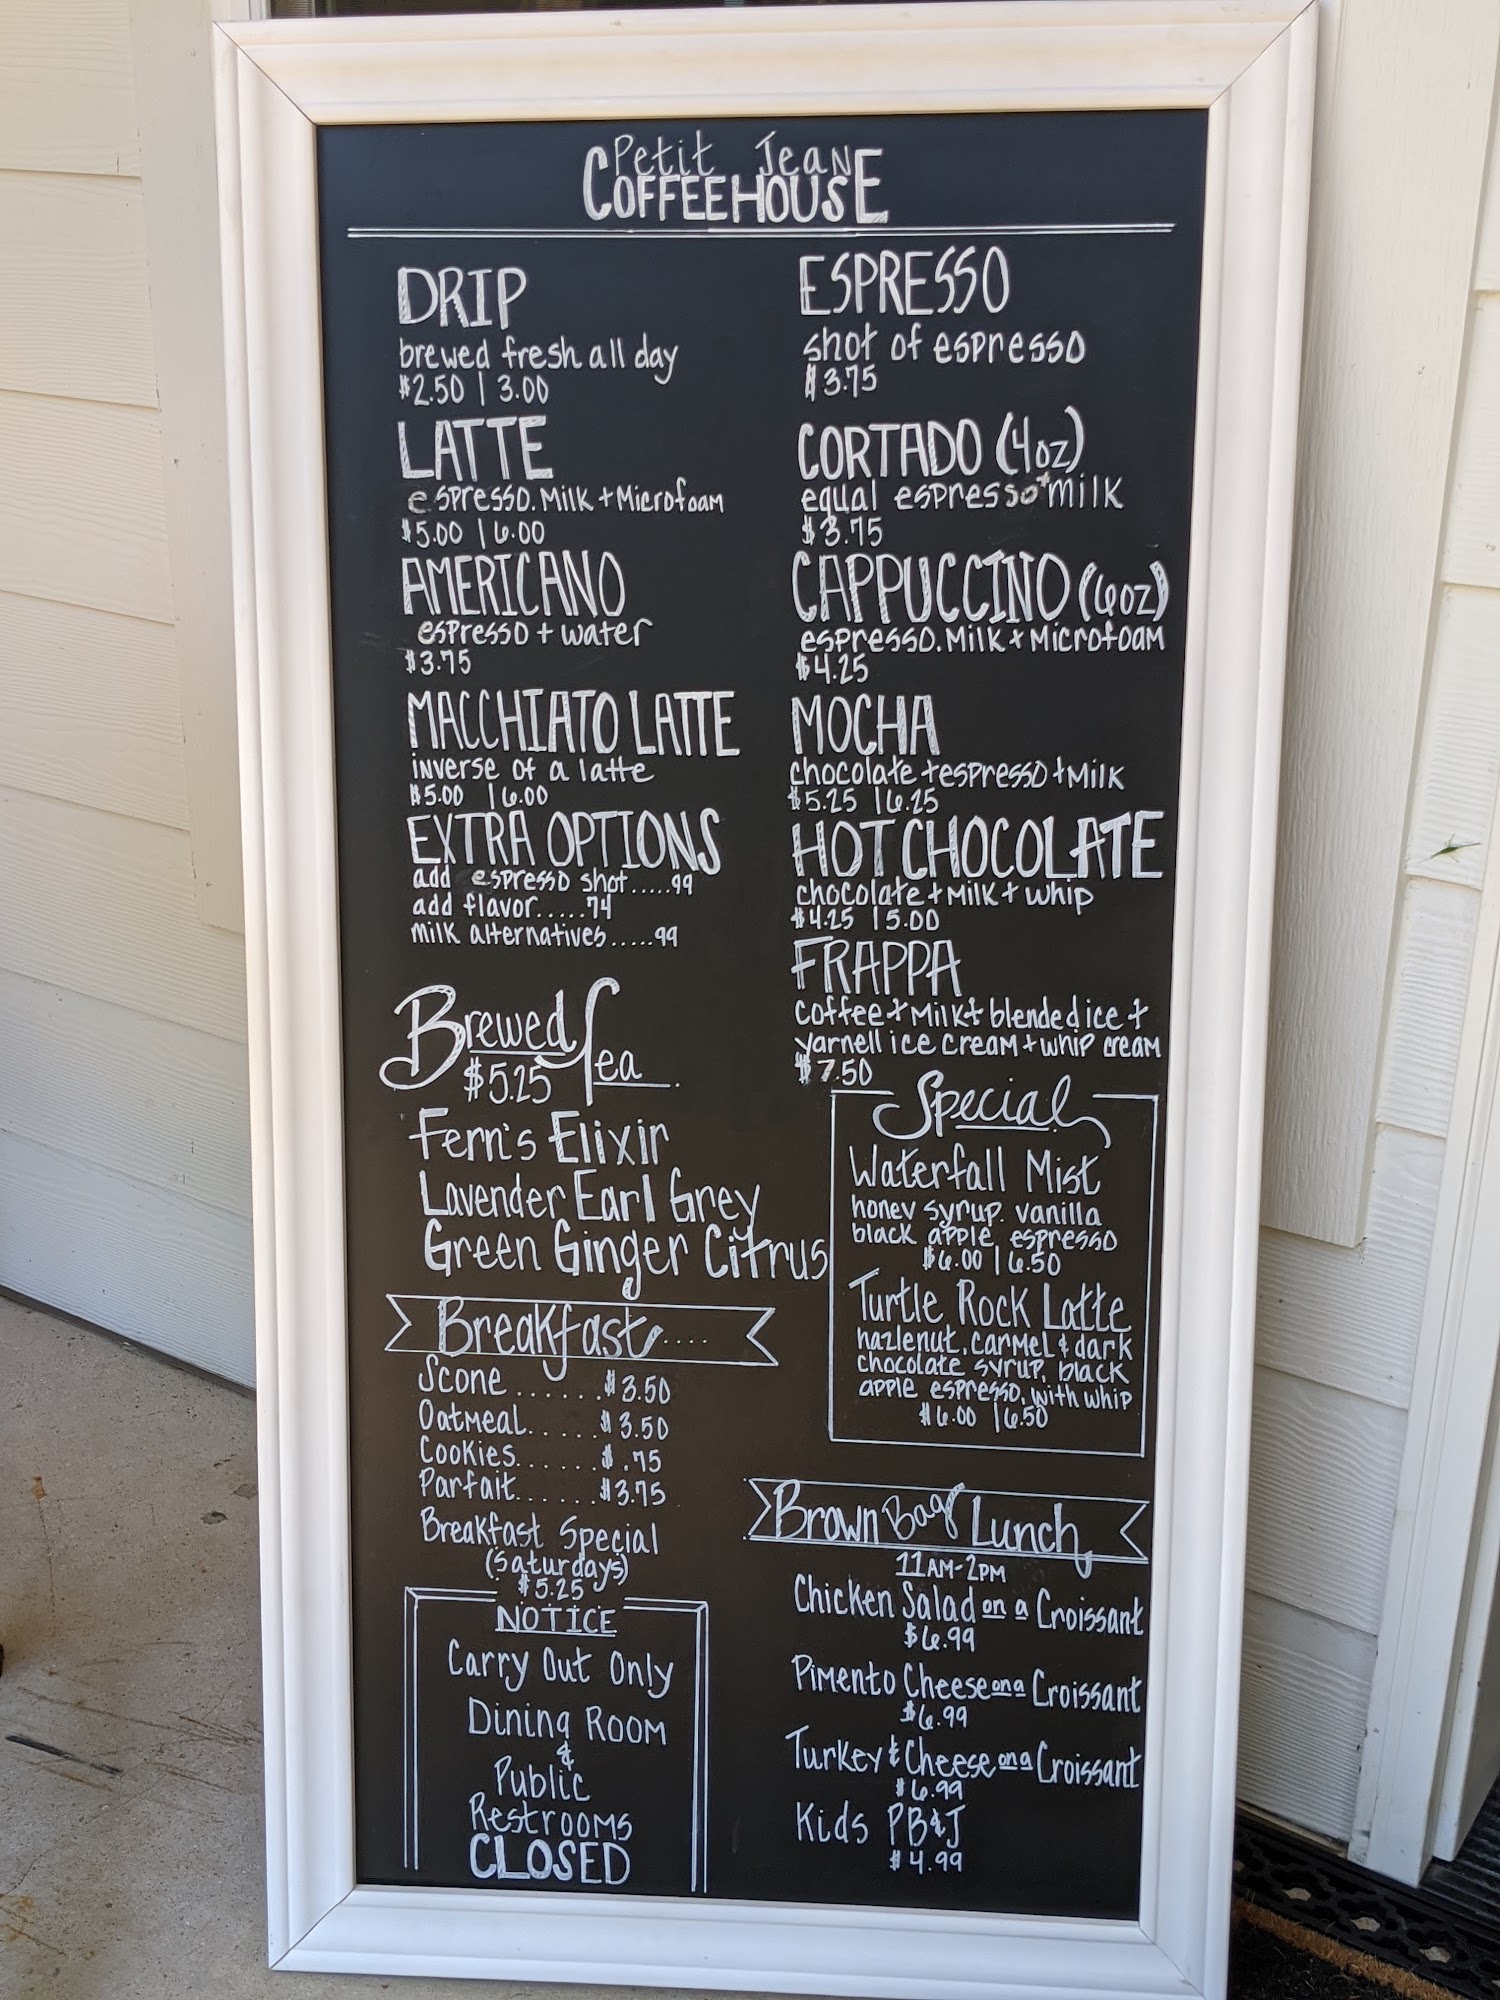 Petit Jean
COFFEEHOUSE
DRIP
brewed fresh all day
$2.50 | 3.00
LATTE
espresso. Milk + Microfoam
$5.00 | 6.00
AMERICANO
espresso + water
$3.75
MACCHIATO LATTE
inverse of a latte
$5.00 | 6.00
EXTRA OPTIONS
add espresso shot.....99
add flavor.....74
milk alternatives.....99
Brewed Tea
$5.25
Fern's Elixir
Lavender Earl Grey
Green Ginger Citrus
Breakfast....
Scone......$3.50
Oatmeal......$3.50
Cookies......$.75
Parfait......$3.75
Breakfast Special
(Saturdays)
$5.25
NOTICE
Carry Out Only
Dining Room
&
Public
Restrooms
CLOSED
ESPRESSO
shot of espresso
$3.75
CORTADO (4oz)
equal espresso + milk
$3.75
CAPPUCCINO (6oz)
espresso. Milk + Microfoam
$4.25
MOCHA
chocolate + espresso + Milk
$5.25 | 6.25
HOT CHOCOLATE
chocolate + Milk + whip
$4.25 | 5.00
FRAPPA
coffee + Milk + blended ice +
yarnell ice cream + whip cream
$7.50
Special
Waterfall Mist
honey syrup. vanilla
black apple espresso
$6.00 | 6.50
Turtle Rock Latte
hazlenut, carmel & dark
chocolate syrup, black
apple espresso, with whip
$6.00 | 6.50
Brown Bag Lunch
11AM-2PM
Chicken Salad on a Croissant
$6.99
Pimento Cheese on a Croissant
$6.99
Turkey & Cheese on a Croissant
$6.99
Kids PB&J
$4.99